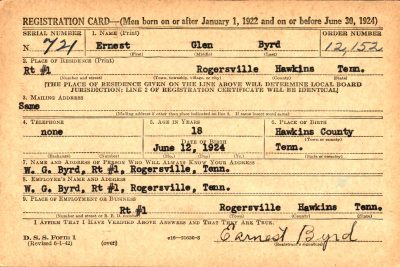 REGISTRATION CARD—(Men born on or after January 1, 1922 and on or before June 30, 1924)
SERIAL NUMBER 1. NAME (Print) ORDER NUMBER
N 721 Ernest Glen Byrd 12,152
(First) (Middle) (Last)
2. PLACE OF RESIDENCE (Print)
Rt #1 Rogersville Hawkins Tenn.
(Number and street) (Town, township, village, or city) (County) (State)
[THE PLACE OF RESIDENCE GIVEN ON THE LINE ABOVE WILL DETERMINE LOCAL BOARD
JURISDICTION; LINE 2 OF REGISTRATION CERTIFICATE WILL BE IDENTICAL]
3. MAILING ADDRESS
Same
(Mailing address if other than place indicated on line 2. If same insert word same)
4. TELEPHONE 5. AGE IN YEARS 6. PLACE OF BIRTH
none 18 Hawkins County
DATE OF BIRTH (Town or county)
June 12, 1924 Tenn.
(Exchange) (Number) (Mo.) (Day) (Yr.) (State or country)
7. NAME AND ADDRESS OF PERSON WHO WILL ALWAYS KNOW YOUR ADDRESS
W. G. Byrd, Rt #1, Rogersville, Tenn.
8. EMPLOYER'S NAME AND ADDRESS
W. G. Byrd, Rt #1, Rogersville, Tenn.
9. PLACE OF EMPLOYMENT OR BUSINESS
Rt #1 Rogersville Hawkins Tenn.
(Number and street or R. F. D. number) (Town) (County) (State)
I AFFIRM THAT I HAVE VERIFIED ABOVE ANSWERS AND THAT THEY ARE TRUE.
D. S. S. Form 1
(Revised 6-1-42) (over) Earnest Byrd
(Registrant's signature)